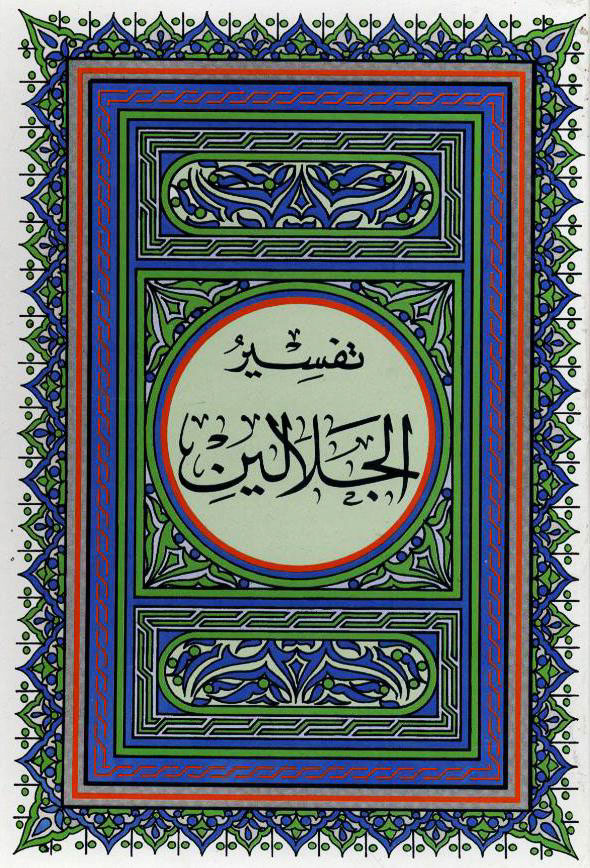 تفسِيرُ
الجَلالينِ